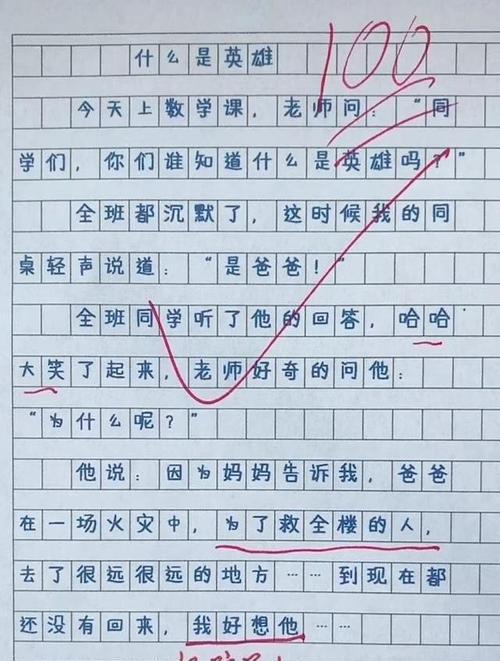 100
什么是英雄
今天上数学课，老师问：“同
学们，你们谁知道什么是英雄吗？”
全班都沉默了，这时候我的同
桌轻声说道：“是爸爸！”
全班同学听了他的回答，哈哈
大笑了起来，老师好奇的问他：
“为什么呢？”
他说：因为妈妈告诉我，爸爸
在一场火灾中，为了救全楼的人，
去了很远很远的地方……到现在都
还没有回来，我好想他……